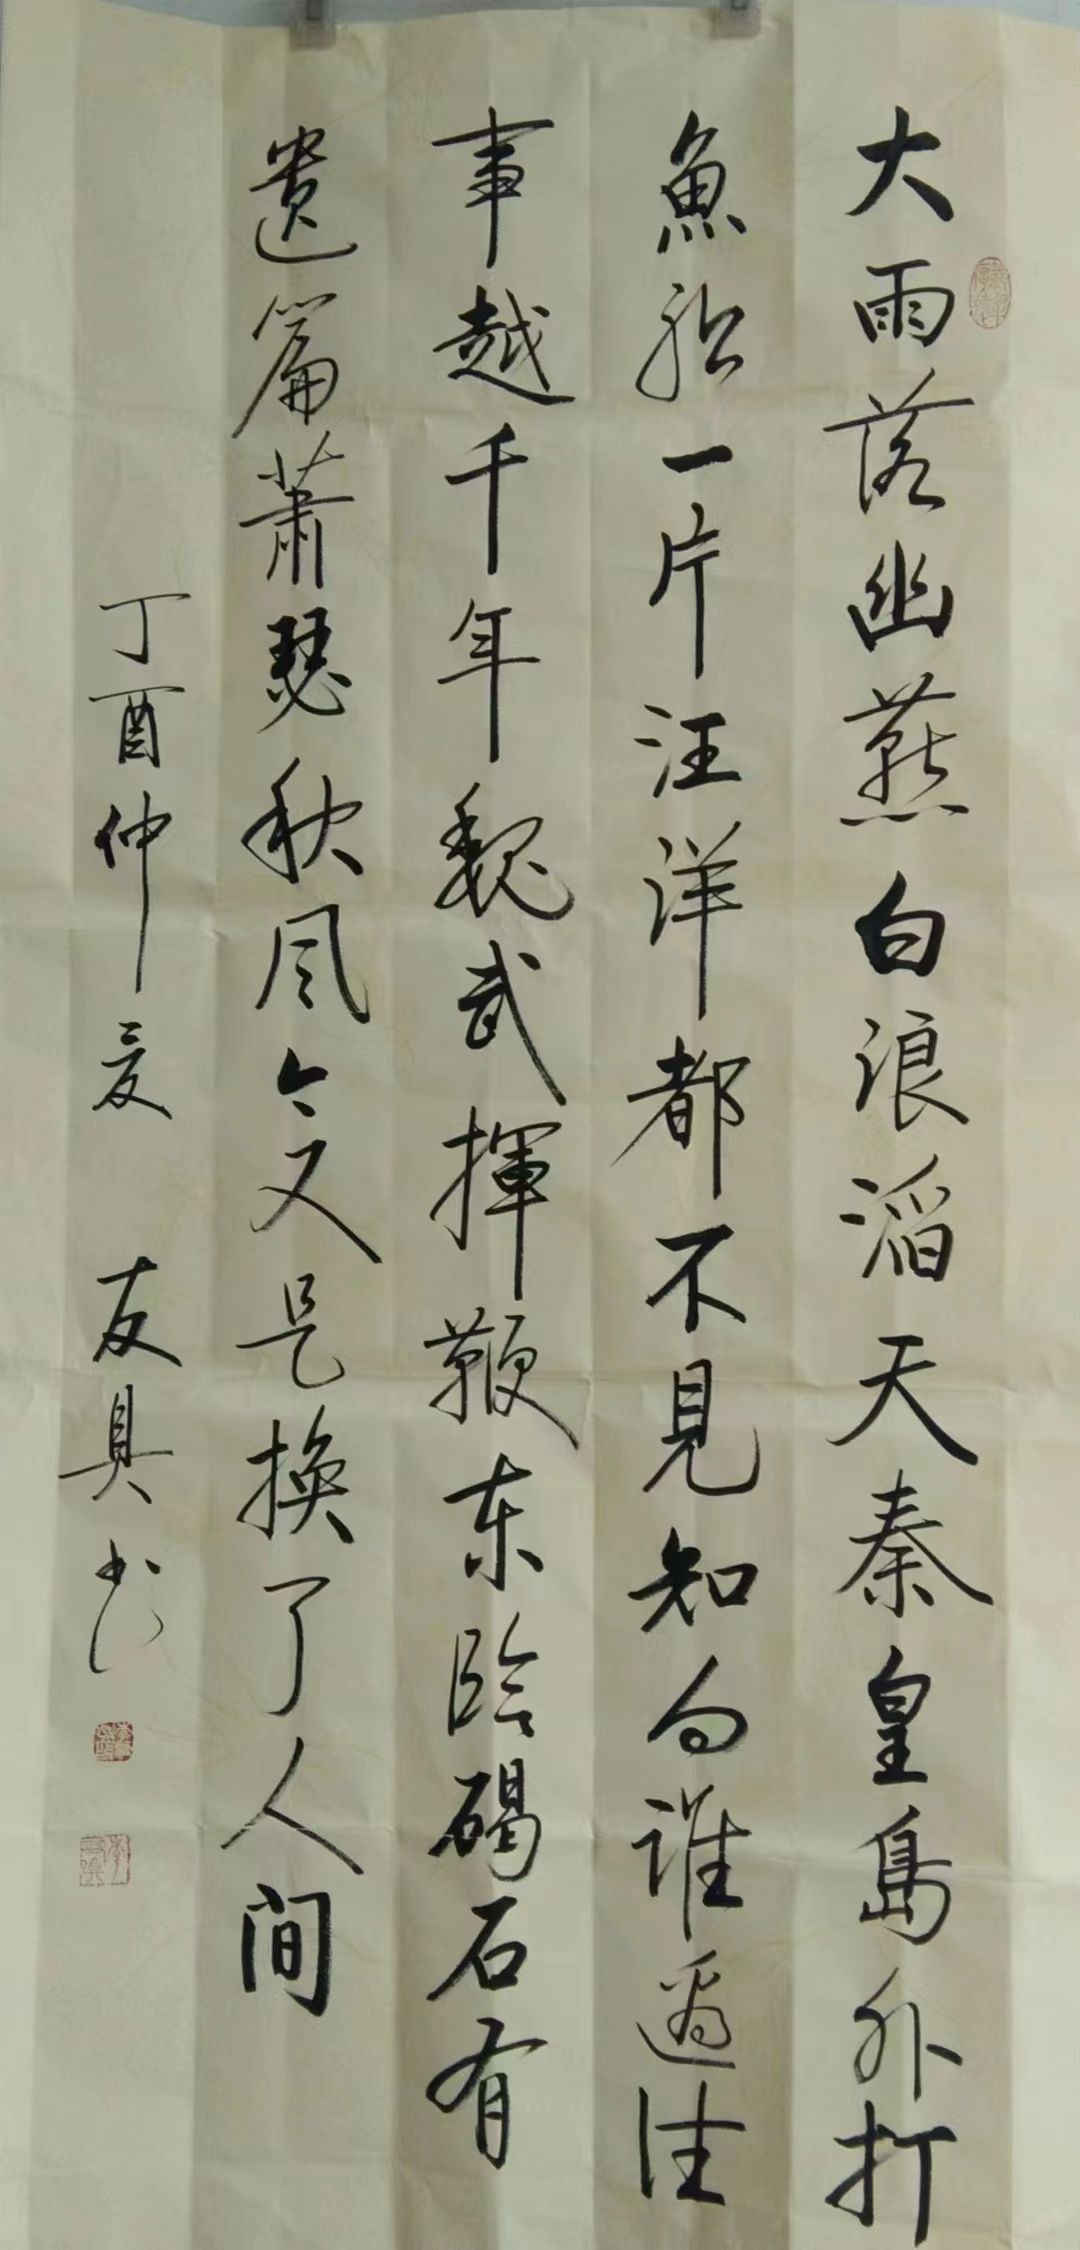 大雨落幽燕白浪滔天秦皇島外打
魚船一片汪洋都不見知向誰邊往
事越千年魏武揮鞭东臨碣石有
遺篇蕭瑟秋风今又是換了人间
丁酉仲夏 友真书